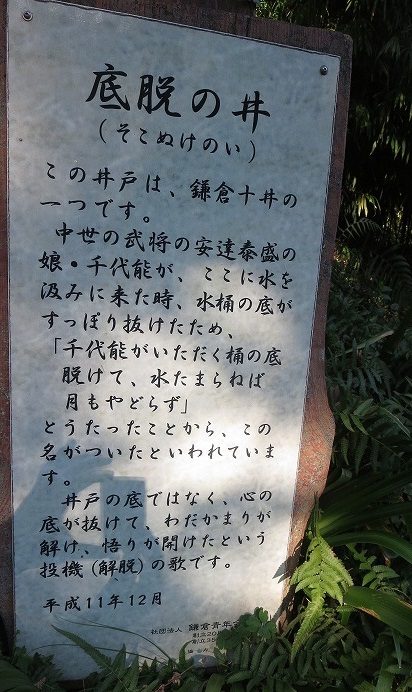 底脱の井
(そこぬけのい)
この井戸は、鎌倉十井の
一つです。
中世の武将の安達泰盛の
娘・千代能が、ここに水を
汲みに来た時、水桶の底が
すっぽり抜けたため、
「千代能がいただく桶の底
脱けて、水たまらねば
月もやどらず」
とうたったことから、この
名がついたといわれていま
す。
井戸の底ではなく、心の
底が抜けて、わだかまりが
解け、悟りが開けたという
投機(解脱)の歌です。
平成11年12月
社団法人 鎌倉青年
創立20
創立35